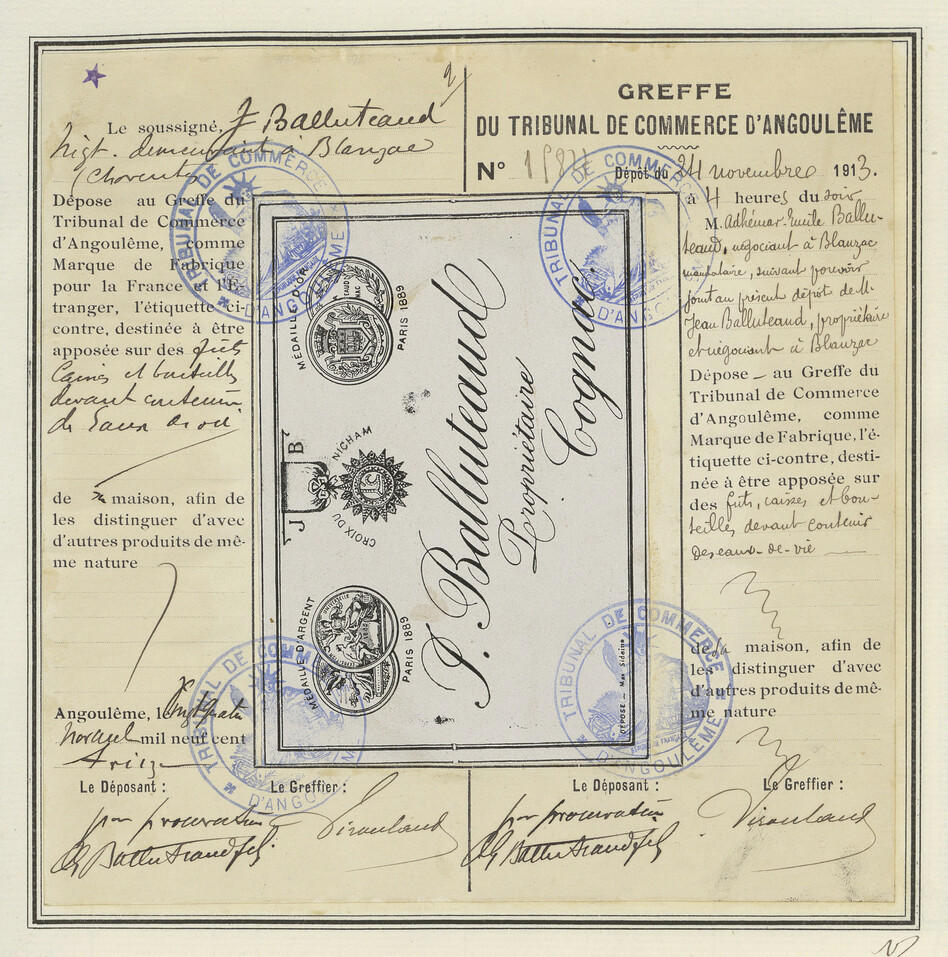 Le soussigné, J Balluteaud
Négt. demeurant à Blanzac
(Charente)
Dépose au Greffe du
Tribunal de Commerce
d'Angoulême, comme
Marque de Fabrique
pour la France et l'É-
tranger, l'étiquette ci-
contre, destinée à être
apposée sur des fûts
Caisses et bouteilles
devant contenir
des Eaux de vie
de sa maison, afin de
les distinguer d'avec
d'autres produits de mê-
me nature
Angoulême, le vingt quatre
novembre mil neuf cent
treize
Le Déposant :
Le Greffier :
par procuration
Balluteaud fils
GREFFE
DU TRIBUNAL DE COMMERCE D'ANGOULÊME
N°
Dépôt du 24 novembre 1913.
à 4 heures du soir
M. Adhémar-Emile Ballu-
teaud, négociant à Blanzac
mandataire, suivant pouvoir
joint au présent dépôt de M.
Jean Balluteaud, propriétaire
et négociant à Blanzac
Dépose au Greffe du
Tribunal de Commerce
d'Angoulême, comme
Marque de Fabrique, l'é-
tiquette ci-contre, desti-
née à être apposée sur
des fûts, caisses et bou-
teilles devant contenir
des eaux-de-vie
de sa maison, afin de
les distinguer d'avec
d'autres produits de mê-
me nature
Le Déposant :
Le Greffier :
par procuration
Balluteaud fils
MÉDAILLE D'OR
PARIS 1889
J B
CROIX DU NICHAM
MÉDAILLE D'ARGENT
PARIS 1889
J. Balluteaud
Propriétaire
Cognac.
DÉPOSÉ
TRIBUNAL DE COMMERCE
D'ANGOULÊME
TRIBUNAL DE COMMERCE
D'ANGOULÊME
TRIBUNAL DE COMMERCE
D'ANGOULÊME
TRIBUNAL DE COMMERCE
D'ANGOULÊME